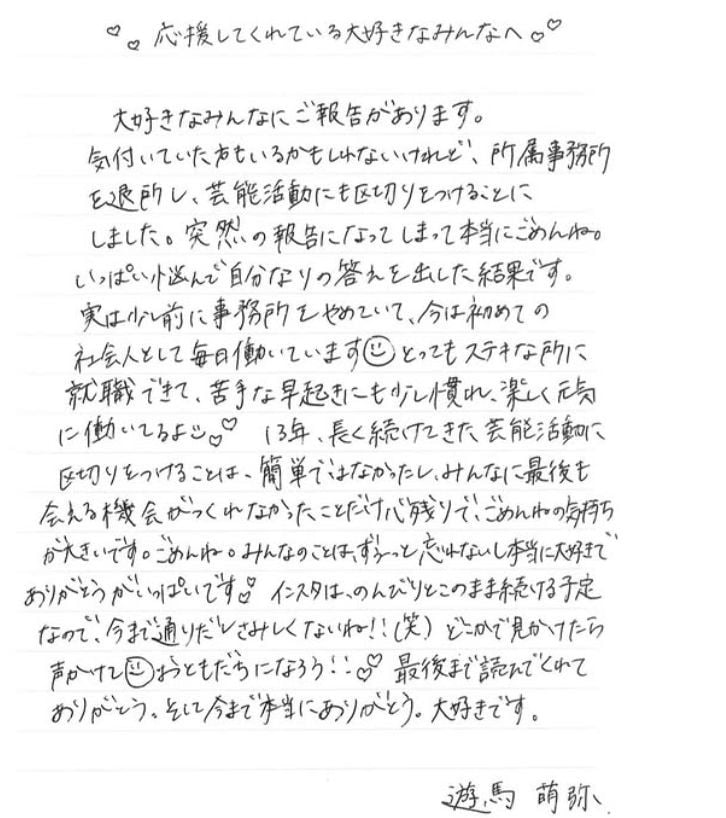 応援してくれている大好きなみんなへ
大好きなみんなにご報告があります。
気付いていた方もいるかもしれないけれど、所属事務所
を退所し、芸能活動にも区切りをつけることに
しました。突然の報告になってしまって本当にごめんね。
いっぱい悩んで自分なりの答えを出した結果です。
実は少し前に事務所をやめていて、今は初めての
社会人として毎日働いています とってもステキな所に
就職できて、苦手な早起きにも少し慣れ、楽しく元気
に働いてるよ 13年、長く続けてきた芸能活動に
区切りをつけることは、簡単ではなかったし、みんなに最後も
会える機会がつくれなかったことだけ心残りで、ごめんねの気持ち
が大きいです。ごめんね。みんなのことは、ずーっと忘れないし本当に大好きで
ありがとうがいっぱいです インスタは、のんびりとこのまま続ける予定
なので、今まで通りだしさみしくないね!!(笑) どこかで見かけたら
声かけて おともだちになろう!! 最後まで読んでくれて
ありがとう。そして今まで本当にありがとう。大好きです。
遊馬 萌弥